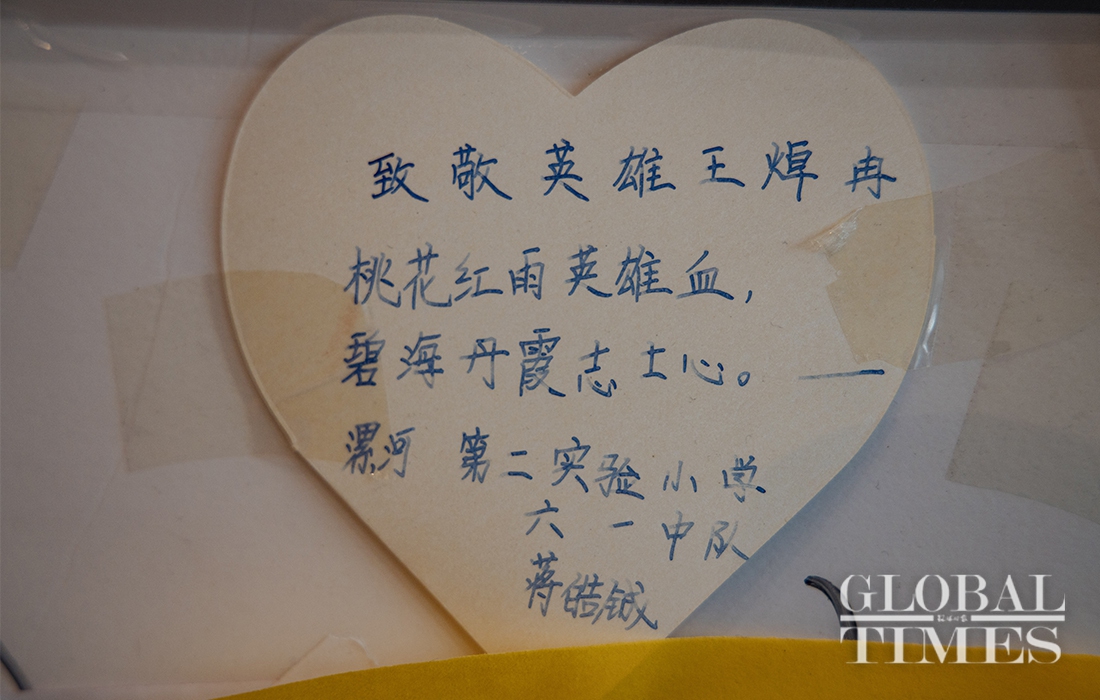 致敬英雄王焯冉
桃花红雨英雄血,
碧海丹霞志士心。——
漯河 第二实验小学
六一中队
蒋皓铖
GLOBAL
TIMES